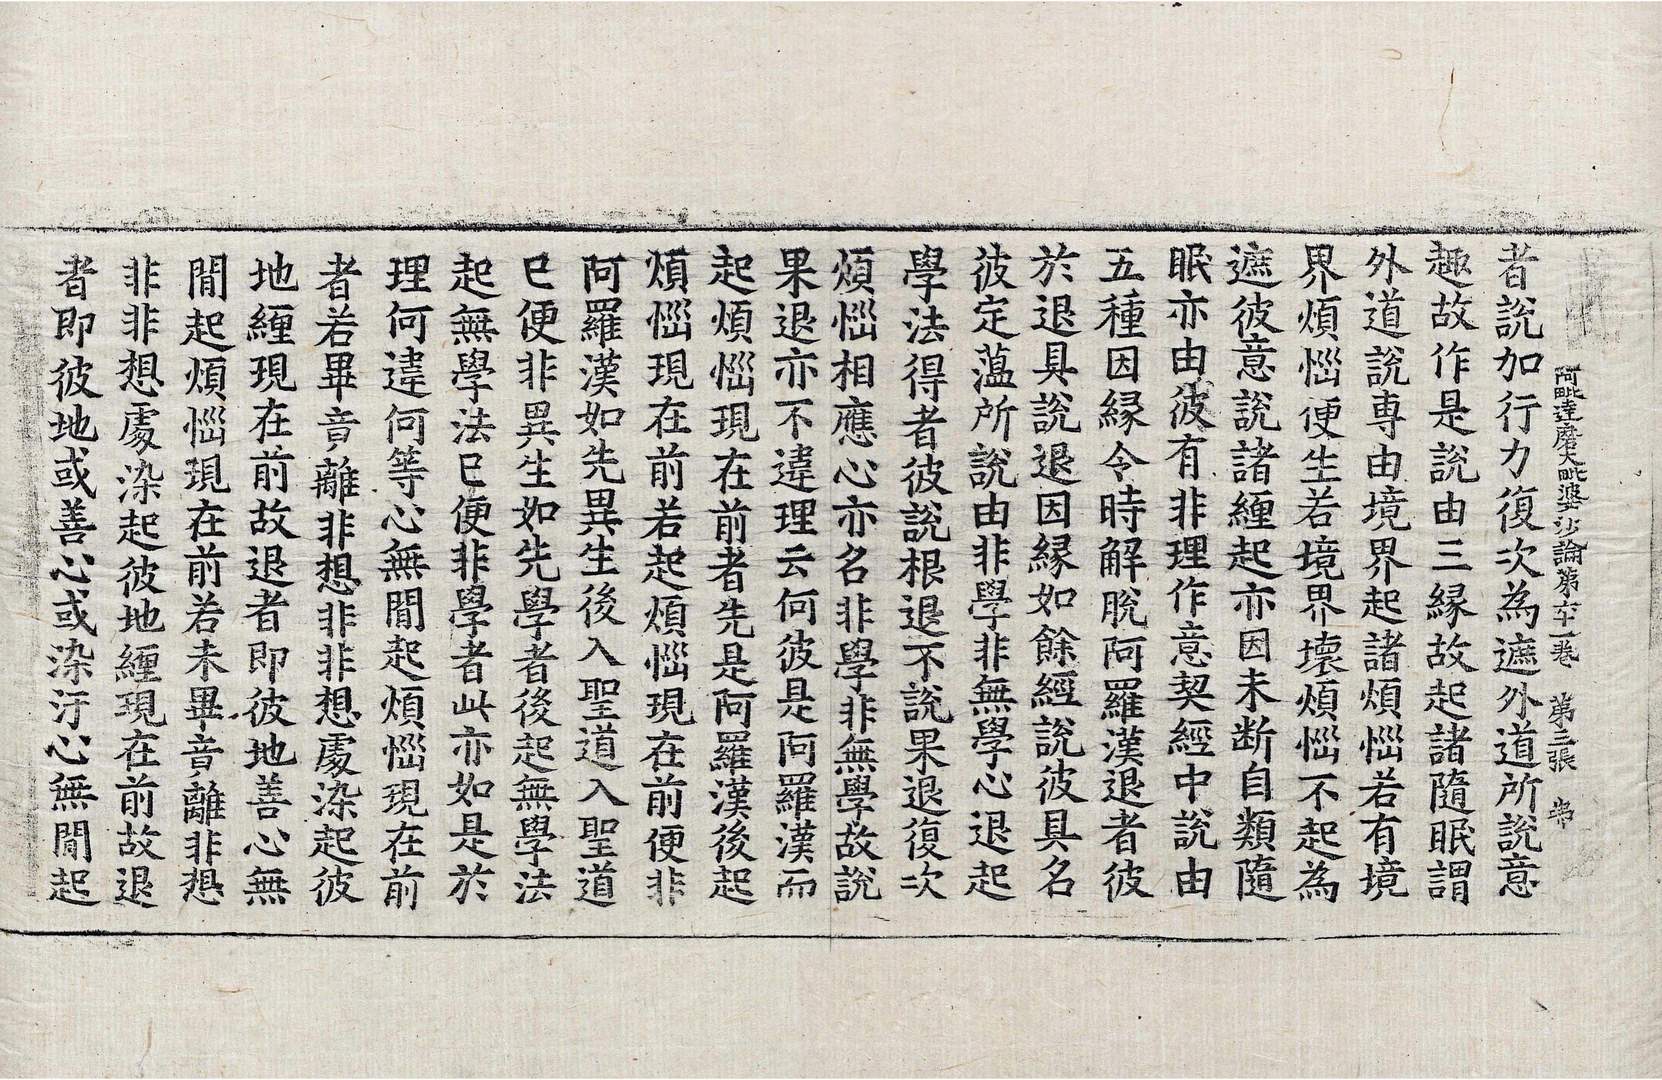 阿毗達磨大毗婆沙論第六十一卷 第三張 弗
者說加行力復次為遮外道所說意
趣故作是說由三縁故起諸隨眠謂
外道說専由境界起諸煩惱若有境
界煩惱便生若境界壞煩惱不起為
遮彼意說諸纏起亦因未断自類隨
眠亦由彼有非理作意契經中說由
五種因縁令時解脫阿羅漢退者彼
於退具說退因縁如餘經說彼具名
彼定薀所說由非學非無學心退起
學法得者彼說根退不說果退復次
煩惱相應心亦名非學非無學故說
果退亦不違理云何彼是阿羅漢而
起煩惱現在前者先是阿羅漢後起
煩惱現在前若起煩惱現在前便非
阿羅漢如先異生後入聖道入聖道
已便非異生如先學者後起無學法
起無學法已便非學者此亦如是於
理何違何等心無閒起煩惱現在前
者若畢竟離非想非非想處染起彼
地纏現在前故退者即彼地善心無
閒起煩惱現在前若未畢竟離非想
非非想處染起彼地纏現在前故退
者即彼地或善心或染汙心無閒起